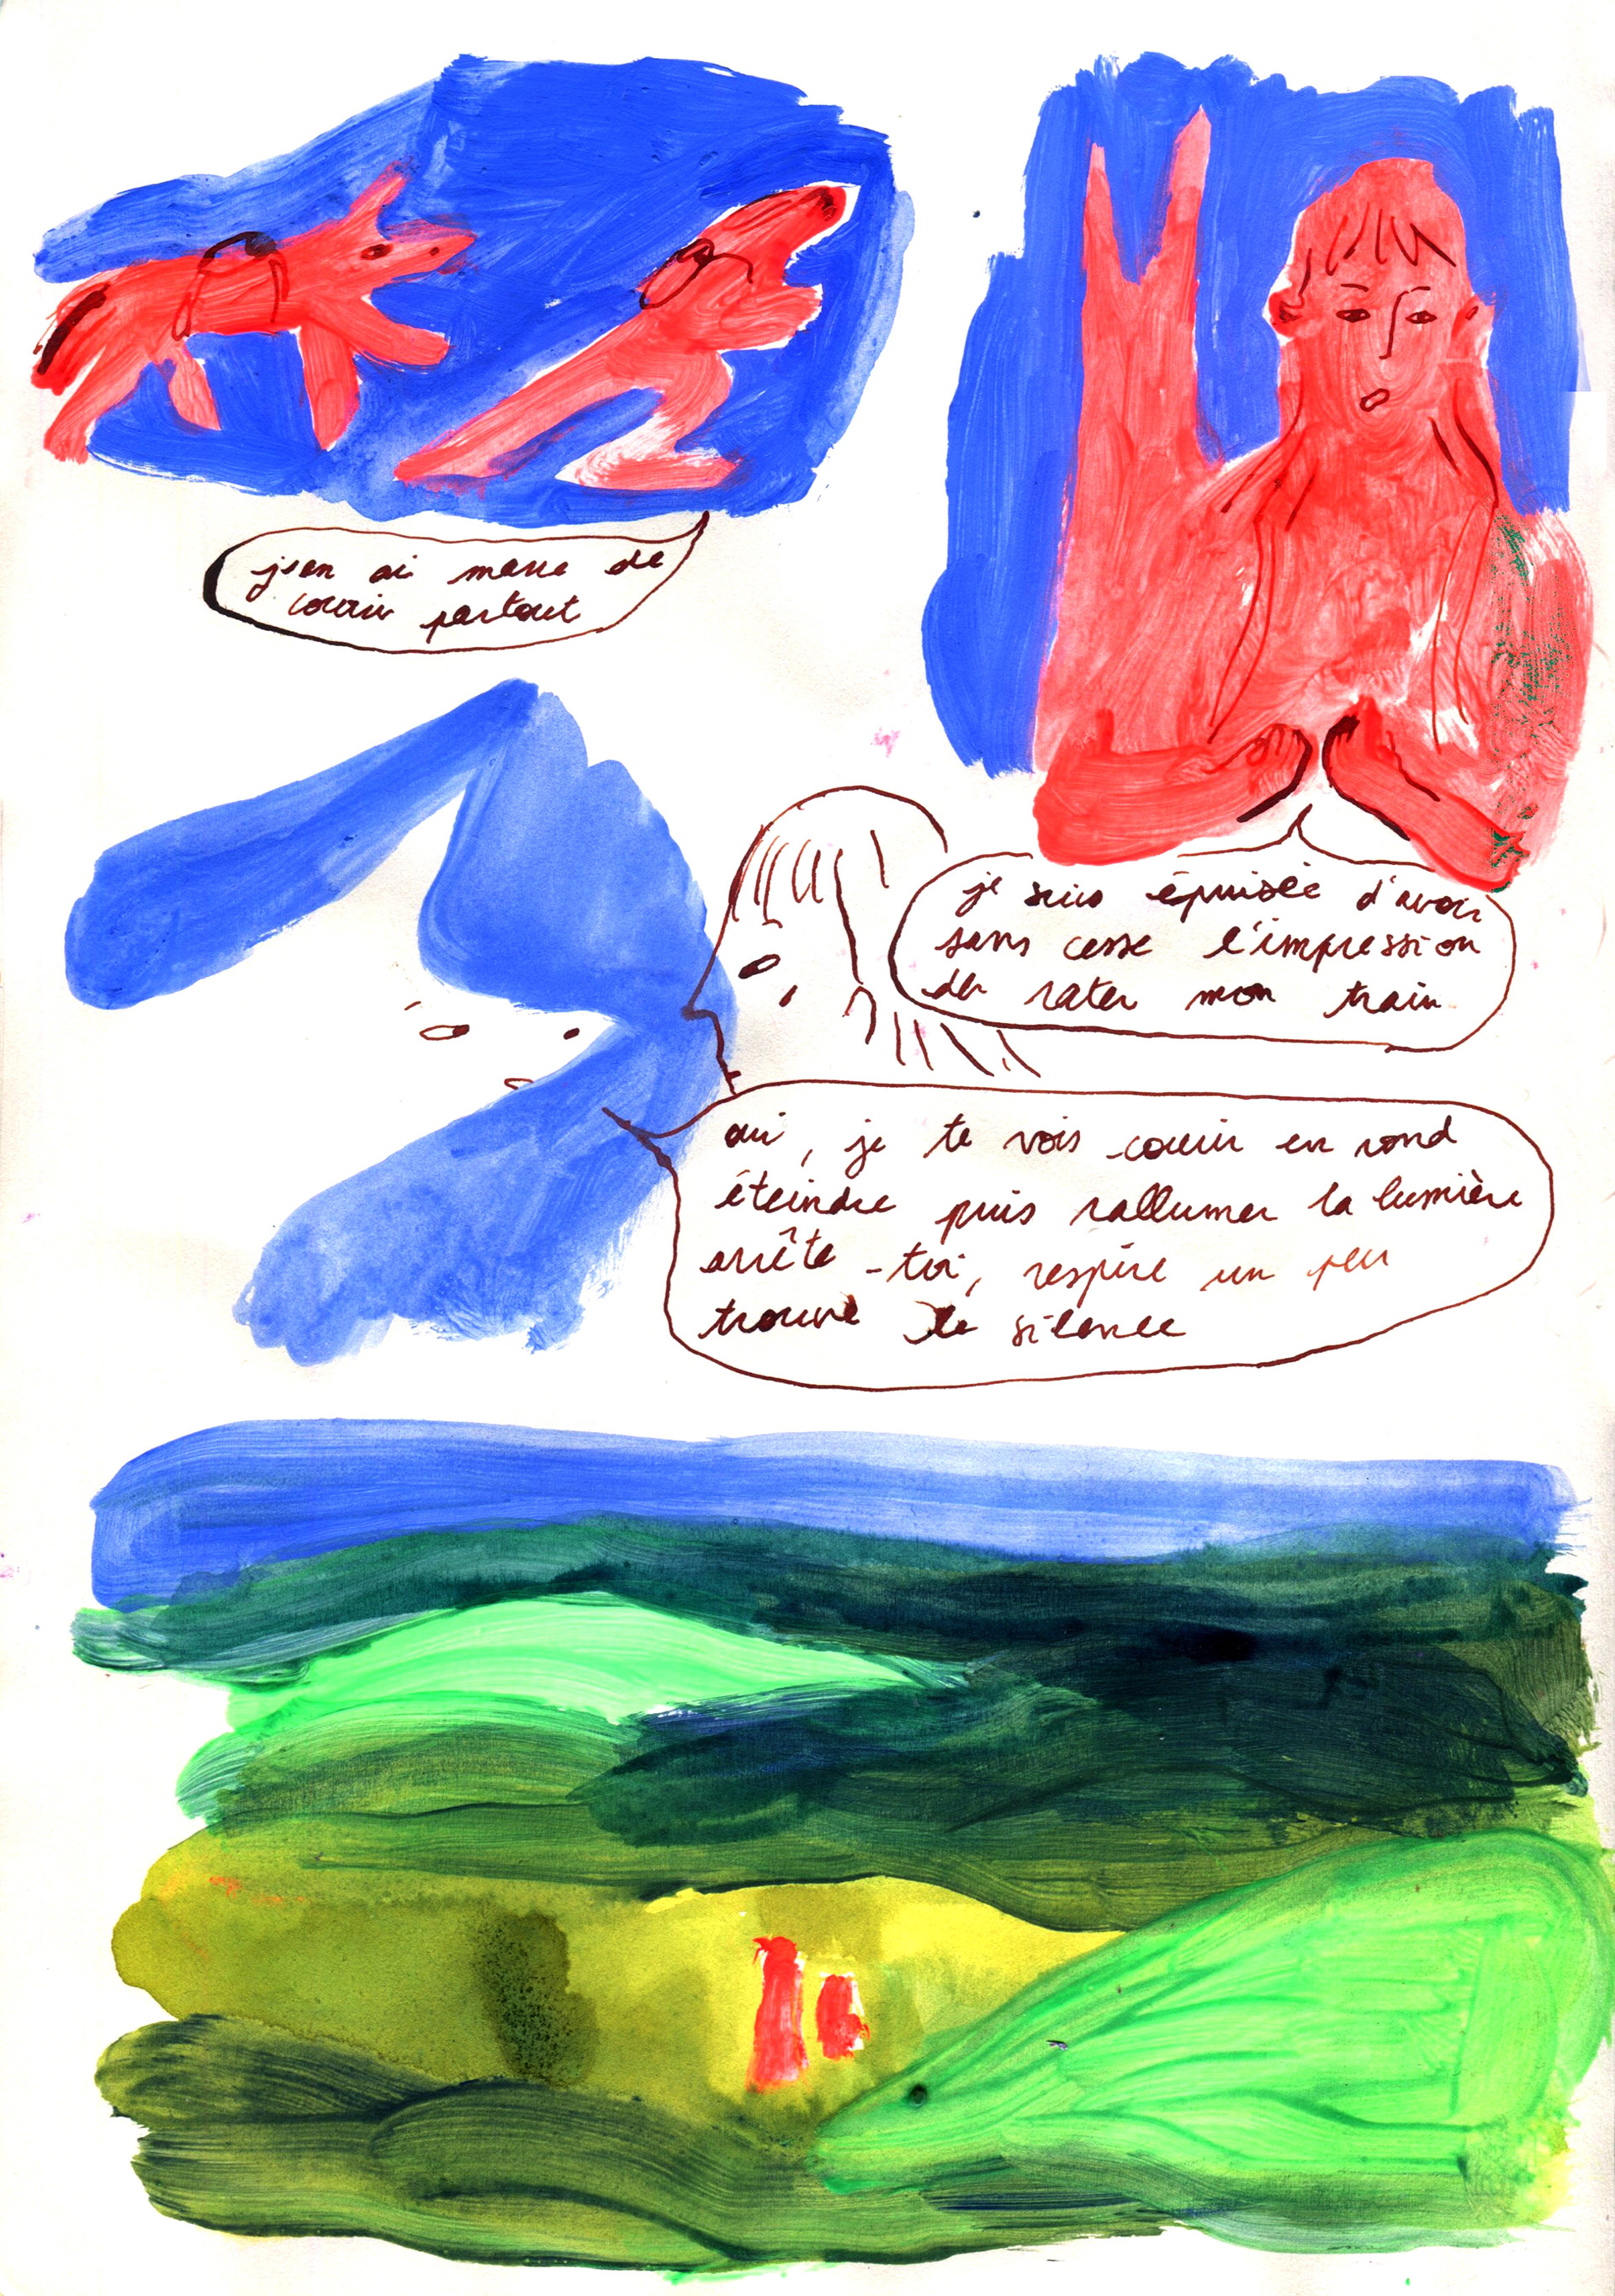 j'en ai marre de
courir partout
je suis épuisée d'avoir
sans cesse l'impression
de rater mon train
oui, je te vois courir en rond
éteindre puis rallumer la lumière
arrête-toi, respire un peu
trouve le silence